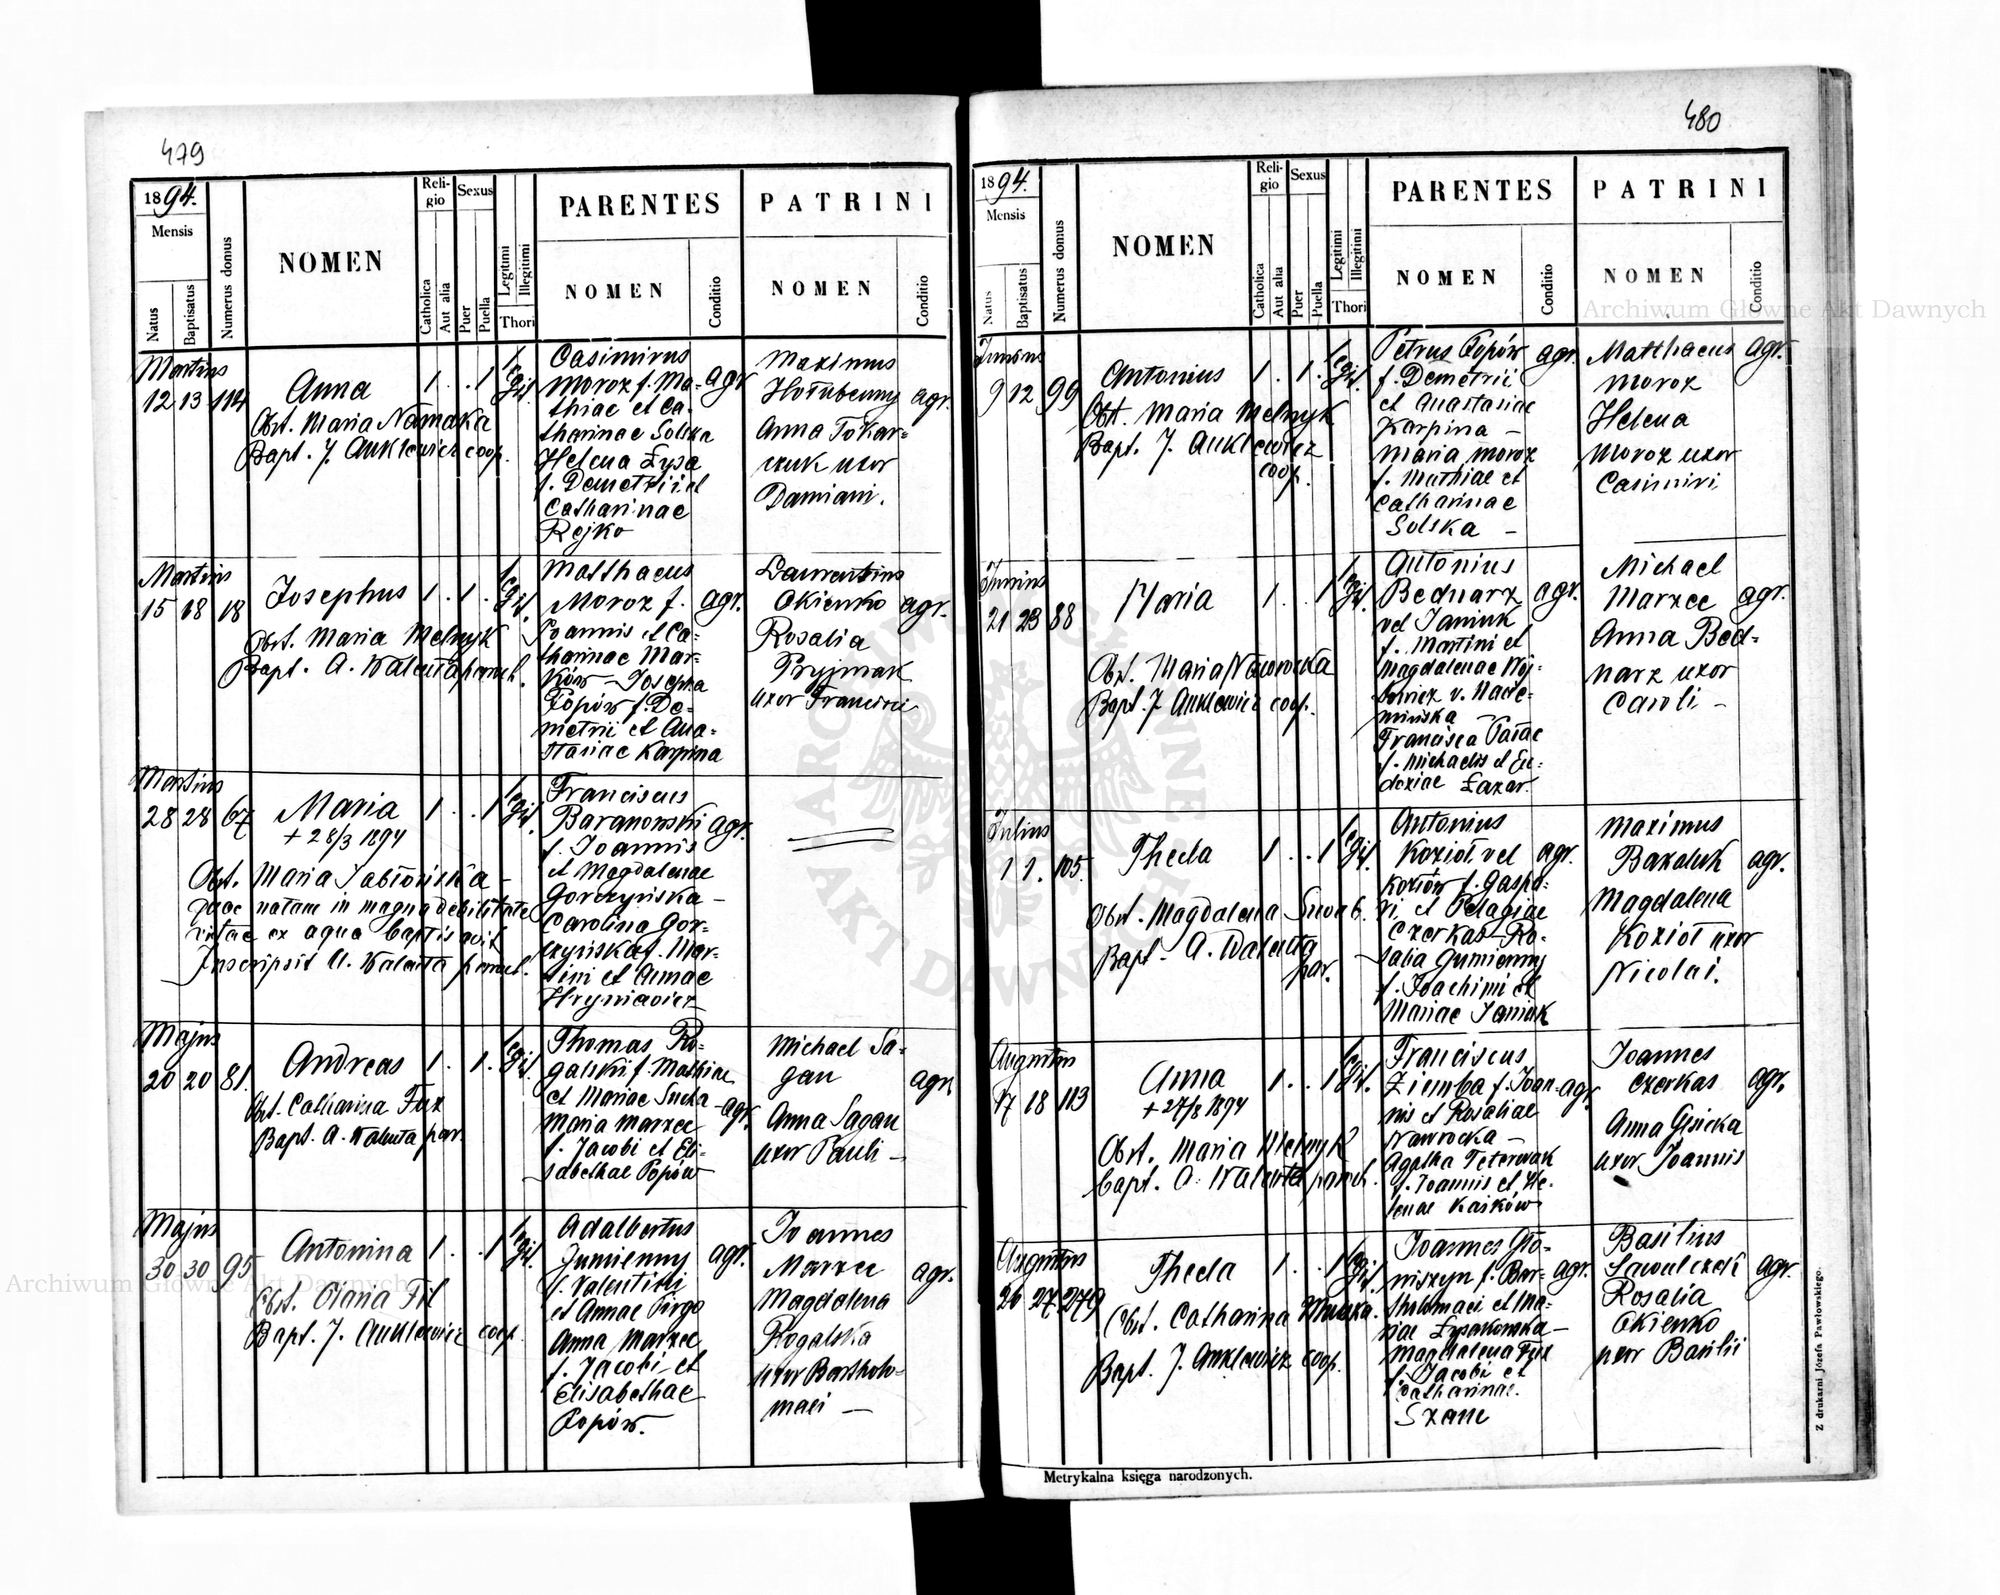 479
1894.
Mensis
Natus
Baptisatus
Numerus domus
NOMEN
Religio
Catholica
Aut alia
Sexus
Puer
Puella
Legitimi
Illegitimi
Thori
PARENTES
NOMEN
Conditio
PATRINI
NOMEN
Conditio
Martius
12 13 114
Anna
1 . . 1 legit.
Obst. Maria Namaka
Bapt. J. Anklewicz coop.
Casimirus
Moroz f. Ma- agr
thiae et Ca-
tharinae Solska
Helena Łysa
f. Demetrii et
Catharinae
Rejko
Maximus
Hołubenny agr.
Anna Tokar-
czuk uxor
Damiani.
Martius
15 18 18
Josephus
1 . 1 . legit.
Obst. Maria Melnyk
Bapt. A. Waleńta paroch.
Matthaeus
Moroz f. agr.
Joannis et Ca-
tharinae Mar-
ków - Josepha
Popów f. De-
metrii et Ana-
stasiae Karpina
Laurentius
Okienko agr.
Rosalia
Pryjmak
uxor Francisci
Martius
28 28 67
Maria
+ 28/3 1894
1 . . 1 legit.
Obst. Maria Jabłońska -
quae natam in magna debilitate
vitae ex aqua baptisavit
Inscripsit A. Waleńta paroch.
Franciscus
Baranowski agr.
f. Joannis
et Magdalenae
Gorczyńska -
Carolina Gor-
czyńska f. Mar-
tini et Annae
Hryniewicz
Majus
20 20 81.
Andreas
1 . 1 . legit.
Obst. Catharina Fux
Bapt. A. Waleńta par.
Thomas Ro-
galski f. Mathiae
et Mariae Sucha
Maria Marzec - agr.
f. Jacobi et Eli-
sabethae Popów
Michael Sa-
gan agr.
Anna Sagan
uxor Pauli -
Majus
30 30 95
Antonina
1 . . 1 legit.
Obst. Maria Fil
Bapt. J. Anklewicz coop.
Adalbertus
Gumienny agr.
f. Valentini
et Annae Pirgo
Anna Marzec
f. Jacobi et
Elisabethae
Popów.
Joannes
Marzec agr.
Magdalena
Rogalska
uxor Bartholo-
maei -
480
1894.
Mensis
Natus
Baptisatus
Numerus domus
NOMEN
Religio
Catholica
Aut alia
Sexus
Puer
Puella
Legitimi
Illegitimi
Thori
PARENTES
NOMEN
Conditio
PATRINI
NOMEN
Conditio
Junius
9 12 99
Antonius
1 . 1 . legit.
Obst. Maria Melnyk
Bapt. J. Anklewicz
coop.
Petrus Popów agr.
f. Demetrii
et Anastasiae
Karpina -
Maria Moroz
f. Mathiae et
Catharinae
Solska -
Matthaeus agr.
Moroz
Helena
Moroz uxor
Casimiri
Junius
21 23 88
Maria
1 . . 1 legit.
Obst. Maria Nawrocka
Bapt. J. Anklewicz coop.
Antonius
Bednarz agr.
vel Janiuk
f. Martini et
Magdalenae Wój-
towicz v. Nade-
mińska -
Francisca Pałac
f. Michaelis et Eu-
doxiae Łazar.
Michael
Marzec agr.
Anna Bed-
narz uxor
Caroli -
Julius
1 1. 105.
Thecla
1 . . 1 legit.
Obst. Magdalena
Bapt. A. Waleńta
par.
Antonius
Kozioł vel agr.
Koziów f. Gaspa-
ri et Pelagiae
Czerkas - Ro-
salia Gumienny
f. Joachimi et
Mariae Janiuk
Maximus
Bazaluk agr.
Magdalena
Kozioł uxor
Nicolai.
Augustus
17 18 113
Anna
+ 27/8 1894
1 . . 1 legit.
Obst. Maria Melnyk
Bapt. A. Waleńta paroch.
Franciscus
Ziemba f. Joan- agr.
nis et Rosaliae
Nawrocka -
Agatha Teterczuk
f. Joannis et He-
lenae Kaśków
Joannes
Czerkas agr.
Anna Gisicka
uxor Joannis
Augustus
26 27 279
Thecla
1 . . 1 legit.
Obst. Catharina
Bapt. J. Anklewicz coop.
Joannes Gło-
niszyn f. Bar- agr.
tholomaei et Ma-
riae Łysakowska -
Magdalena Fux
f. Jacobi et
Catharinae.
Szane
Basilius
Sawulczek agr.
Rosalia
Okienko
uxor Basilii
Metrykalna księga narodzonych.
Z drukarni Józefa Pawłowskiego.
Archiwum Główne Akt Dawnych
Archiwum Główne Akt Dawnych
ARCHIWUM GŁÓWNE AKT DAWNYCH